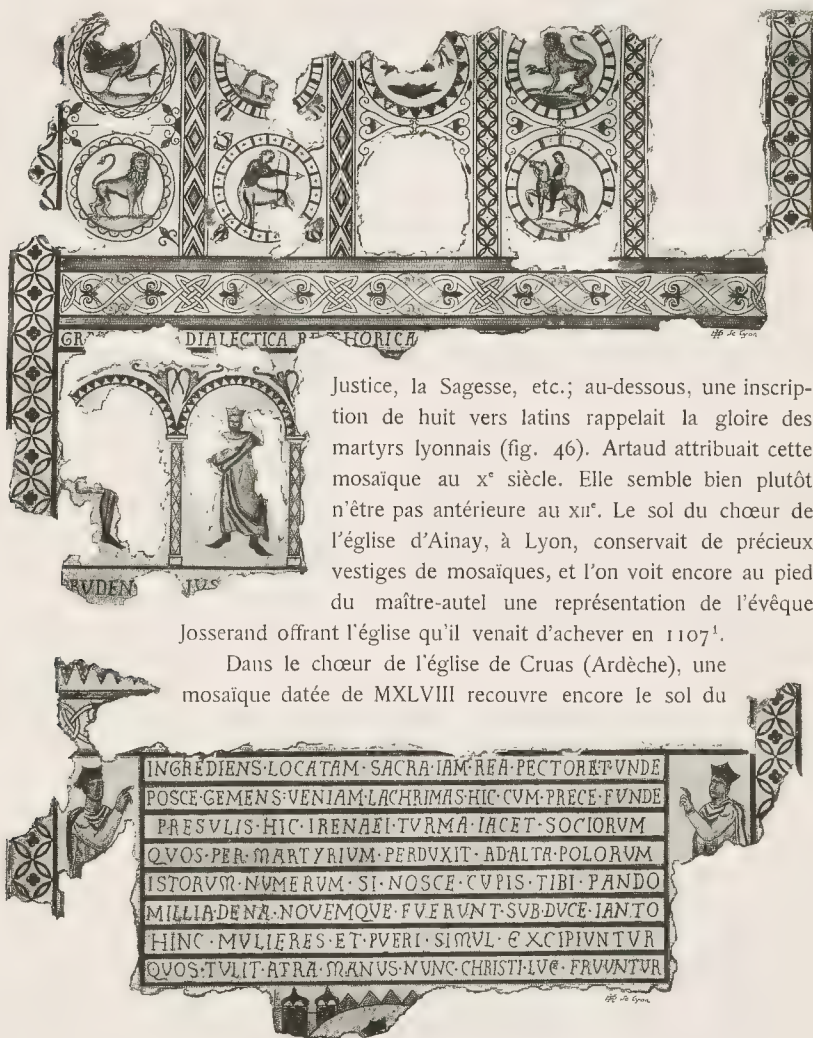 DIALECTICA
de Lyon
Justice, la Sagesse, etc.; au-dessous, une inscrip-
tion de huit vers latins rappelait la gloire des
martyrs lyonnais (fig. 46). Artaud attribuait cette
mosaïque au xᵉ siècle. Elle semble bien plutôt
n'être pas antérieure au xiiᵉ. Le sol du chœur de
l'église d'Ainay, à Lyon, conservait de précieux
vestiges de mosaïques, et l'on voit encore au pied
du maître-autel une représentation de l'évêque
RVDEN JUS
Josserand offrant l'église qu'il venait d'achever en 1107¹.
Dans le chœur de l'église de Cruas (Ardèche), une
mosaïque datée de MXLVIII recouvre encore le sol du
INGREDIENS·LOCATAM·SACRA·IAM·REA·PECTORET·VNDE
POSCE·GEMENS·VENIAM·LACHRIMAS·HIC·CUM·PRECE·FVNDE
PRESVLIS·HIC·IRENAEI·TVRMA·IACET·SOCIORVM
QVOS·PER·MARTYRIVM·PERDVXIT·AD·ALTA·POLORVM
ISTORVM·NUMERVM·SI·NOSCE·CVPIS·TIBI·PANDO
MILLIA·DENA·NOVEMQVE·FVERVNT·SVB·DVCE·IANTO
HINC·MVLIERES·ET·PVERI·SIMVL·EXCIPIVNTVR
QVOS·TVLIT·ATRA·MANVS·NVNC·CHRISTI·LVCE·FRVVNTVR
de Lyon